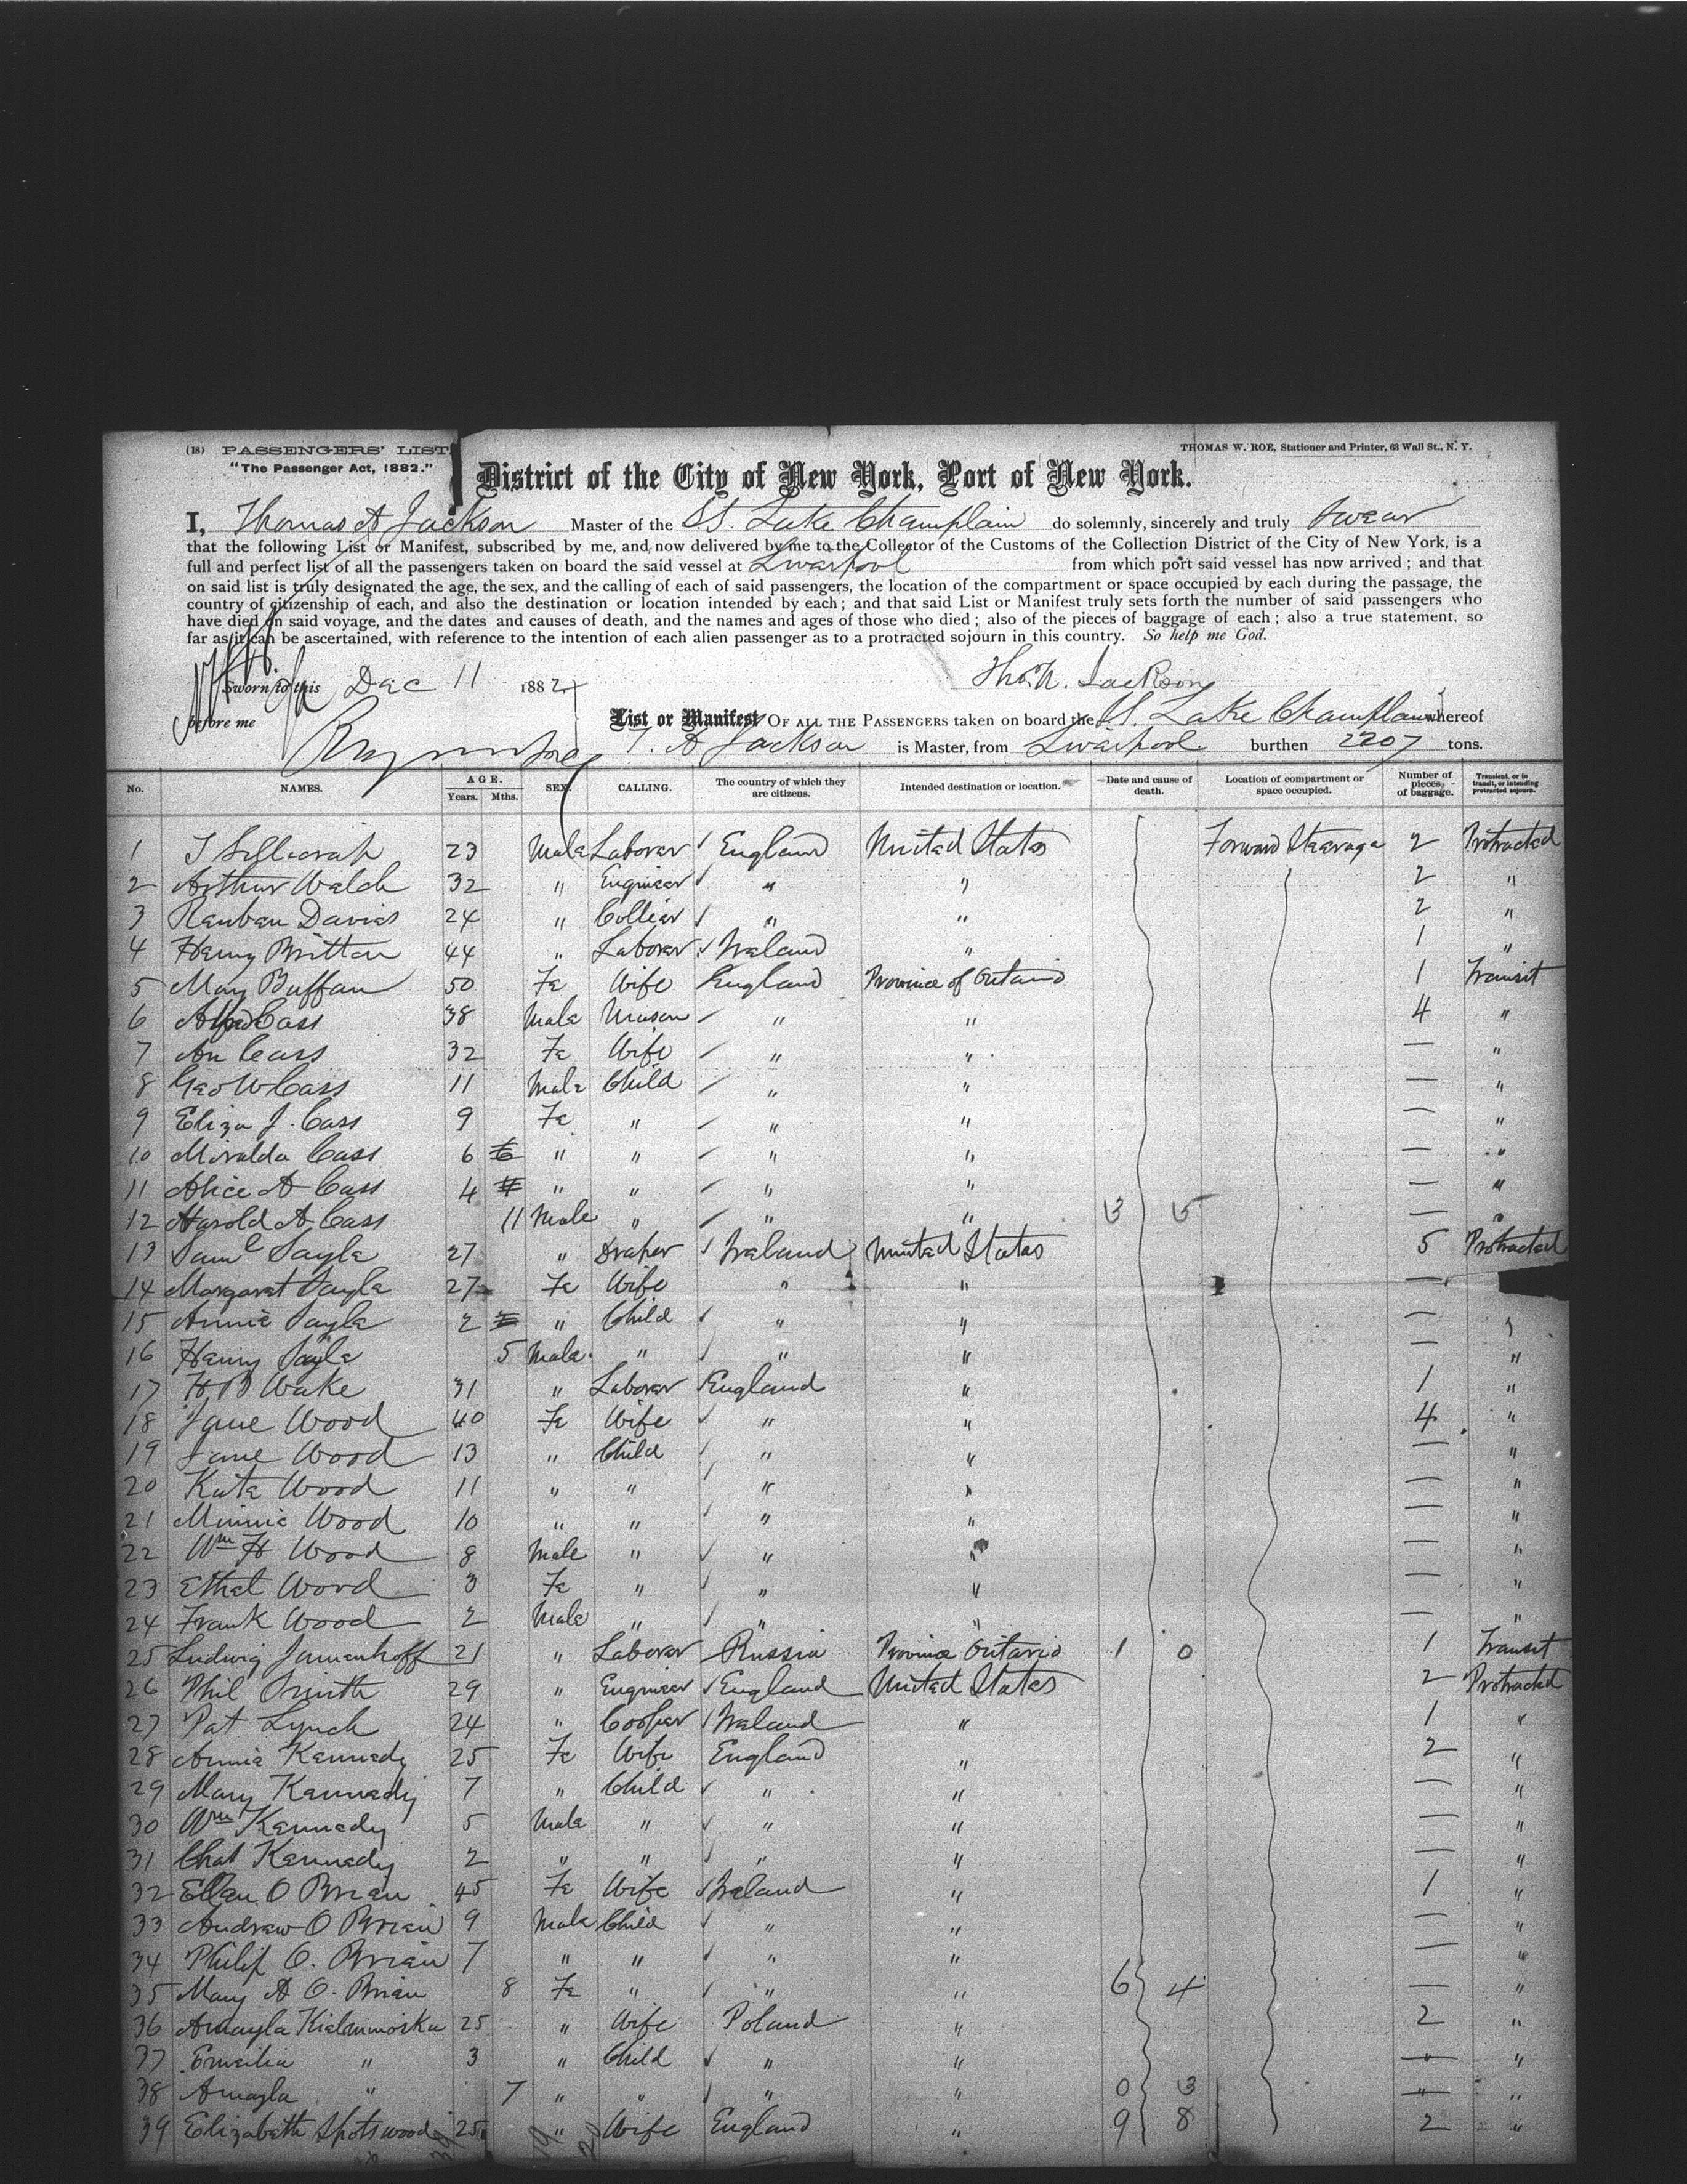 (18) PASSENGERS' LIST
"The Passenger Act, 1882."
THOMAS W. ROE, Stationer and Printer, 63 Wall St., N. Y.
District of the City of New York, Port of New York.
I, Thomas A Jackson Master of the SS. Lake Champlain do solemnly, sincerely and truly swear
that the following List or Manifest, subscribed by me, and now delivered by me to the Collector of the Customs of the Collection District of the City of New York, is a
full and perfect list of all the passengers taken on board the said vessel at Liverpool from which port said vessel has now arrived; and that
on said list is truly designated the age, the sex, and the calling of each of said passengers, the location of the compartment or space occupied by each during the passage, the
country of citizenship of each, and also the destination or location intended by each; and that said List or Manifest truly sets forth the number of said passengers who
have died on said voyage, and the dates and causes of death, and the names and ages of those who died; also of the pieces of baggage of each; also a true statement, so
far as it can be ascertained, with reference to the intention of each alien passenger as to a protracted sojourn in this country. So help me God.
Sworn to this Dec 11 1882 Thos. A. Jackson
before me
List or Manifest OF ALL THE PASSENGERS taken on board the SS. Lake Champlain whereof
T. A Jackson is Master, from Liverpool burthen 2207 tons.
No. NAMES. AGE. Years. Mths. SEX. CALLING. The country of which they are citizens. Intended destination or location. Date and cause of death. Location of compartment or space occupied. Number of pieces of baggage. Transient, or in transit, or intending protracted sojourn.
1 23 Male Laborer England United States Forward Steerage 2 Protracted
2 Arthur Walch 32 " Engineer " " 2 "
3 Reuben Davies 24 " Collier " " 2 "
4 Henry Britton 44 " Laborer Ireland " 1 "
5 Mary Buffan 50 Fe Wife England Province of Ontario 1 Transit
6 Alfred Cass 38 Male Mason " " 4 "
7 An Cass 32 Fe Wife " " — "
8 Geo W Cass 11 Male Child " " — "
9 Eliza J. Cass 9 Fe " " " — "
10 Miralda Cass 6 6 " " " " — "
11 Alice A Cass 4 4 " " " " — "
12 Harold A. Cass 11 Male " " " 13 15 — "
13 Saml Sayle 27 " Draper Ireland United States 5 Protracted
14 Margaret Sayle 27 Fe Wife " " —
15 Annie Sayle 2 " Child " " — "
16 Henry Sayle 5 Male " " " — "
17 H. B Wake 31 " Laborer England " 1 "
18 Jane Wood 40 Fe Wife " " 4 "
19 Jane Wood 13 " Child " " — "
20 Kate Wood 11 " " " " — "
21 Minnie Wood 10 " " " " — "
22 Wm H Wood 8 Male " " " — "
23 Ethel Wood 3 Fe " " " — "
24 Frank Wood 2 Male " " " — "
25 Ludwig Jamenhoff 21 " Laborer Russia Province Ontario 1 0 1 Transit
26 Phil Smith 29 " Engineer England United States 2 Protracted
27 Pat Lynch 24 " Cooper Ireland " 1 "
28 Annie Kennedy 25 Fe Wife England " 2 "
29 Mary Kennedy 7 " Child " " — "
30 Wm Kennedy 5 Male " " " — "
31 Chas Kennedy 2 " " " " — "
32 Ellen O Brien 45 Fe Wife Ireland " 1 "
33 Andrew O Brien 9 Male Child " " — "
34 Philip O. Brien 7 " " " " — "
35 Mary A O. Brien 8 Fe " " " 6 4 — "
36 Amayla Kielanmoska 25 " Wife Poland " 2 "
37 Emeilia " 3 " Child " " — "
38 Amayla " 7 " " " " 0 3 — "
39 Elizabeth Spotswood 25 " Wife England " 9 8 2 "